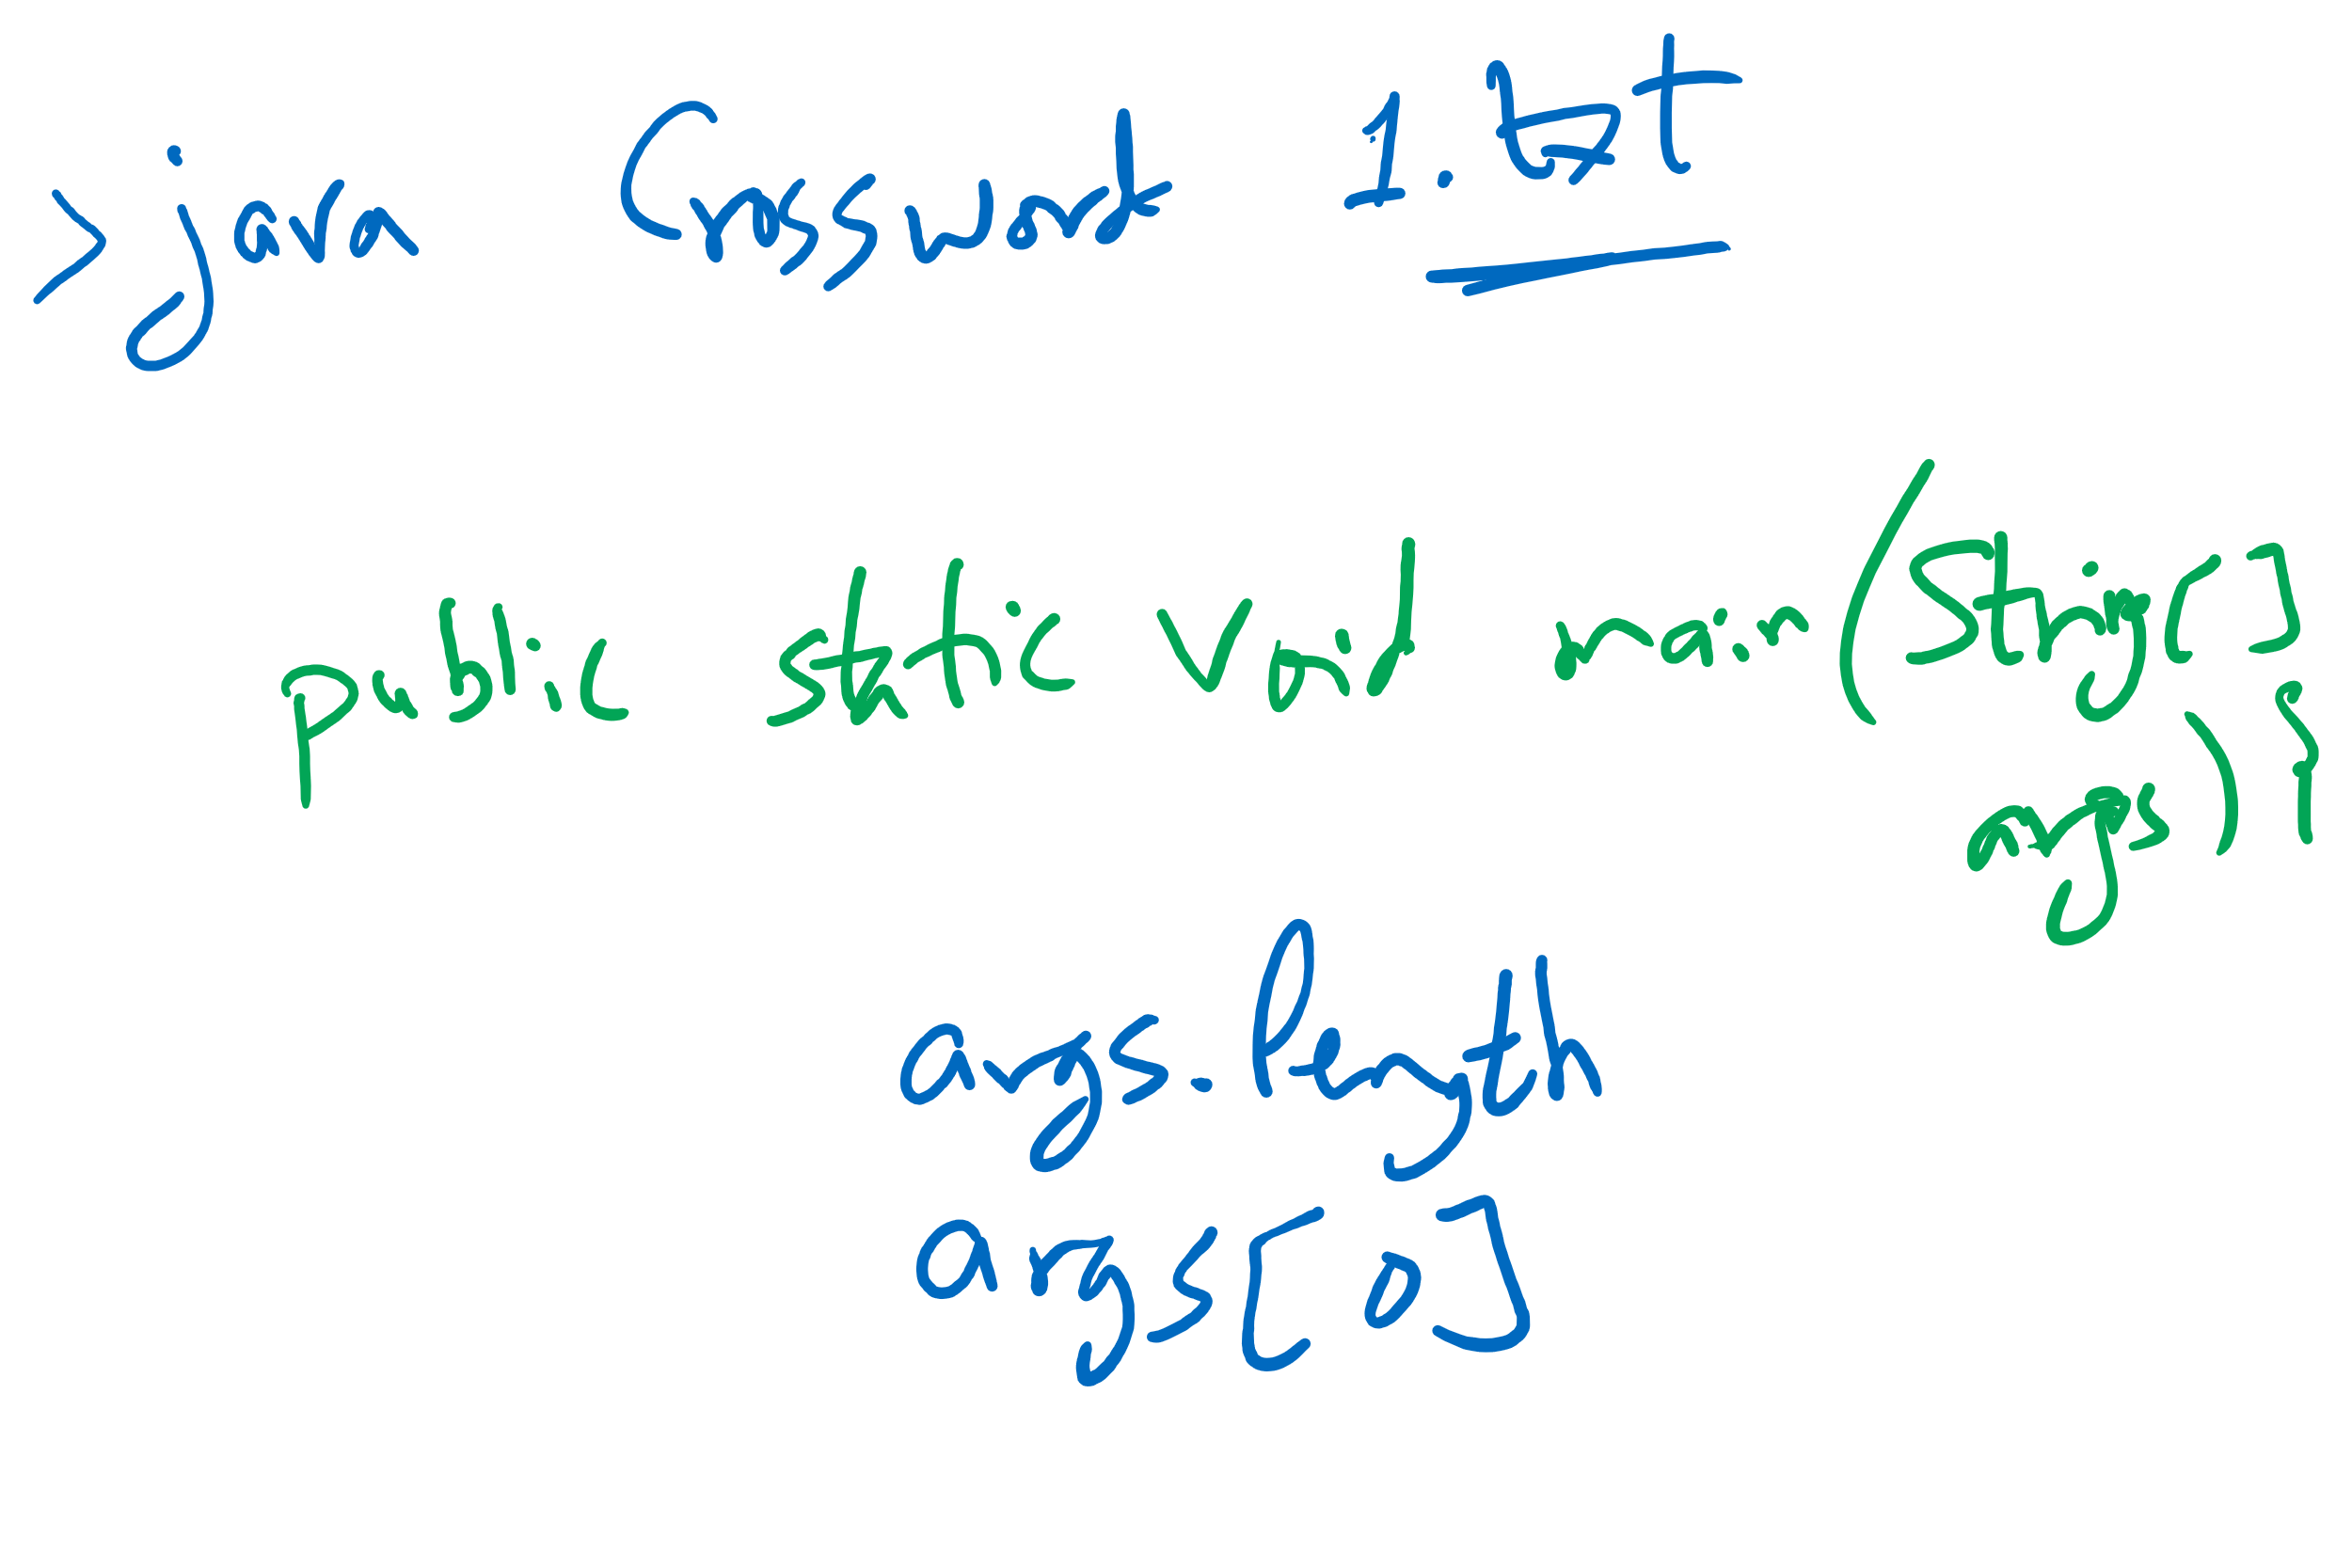 > java Crossword 1.txt
public static void main (String[]
args) {
args.length
args[0]